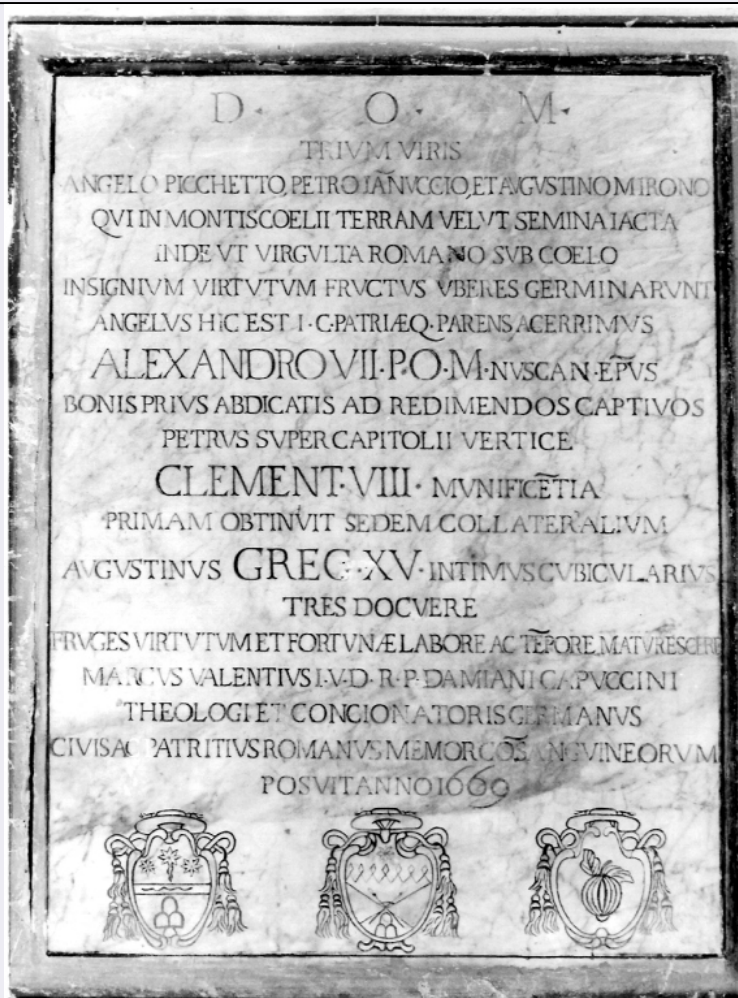 D · O · M ·
TRIVM VIRIS
ANGELO PICCHETTO, PETRO IAÑVCCIO, ET AVGVSTINO MIRONO
QVI IN MONTISCOELII TERRAM VELVT SEMINA IACTA
INDE VT VIRGVLTA ROMANO SVB COELO
INSIGNIVM VIRTVTVM FRVCTVS VBERES GERMINARVNT
ANGELVS HIC EST I · C · PATRIÆQ · PARENS ACERRIMVS
ALEXANDRO VII · P · O · M · NVSCAN · EP̃VS
BONIS PRIVS ABDICATIS AD REDIMENDOS CAPTIVOS
PETRVS SVPER CAPITOLII VERTICE
CLEMENT · VIII · MVNIFICẼTIA
PRIMAM OBTINVIT SEDEM COLLATERALIVM
AVGVSTINVS GREG · XV · INTIMVS CVBICVLARIVS
TRES DOCVERE
FRVGES VIRTVTVM ET FORTVNÆ LABORE AC TẼPORE MATVRESCERE
MARCVS VALENTIVS I · V · D · R · P · DAMIANI CAPVCCINI
THEOLOGI ET CONCIONATORIS GERMANVS
CIVIS AC PATRITIVS ROMANVS MEMOR COÑSANGVINEORVM
POSVIT ANNO 1669